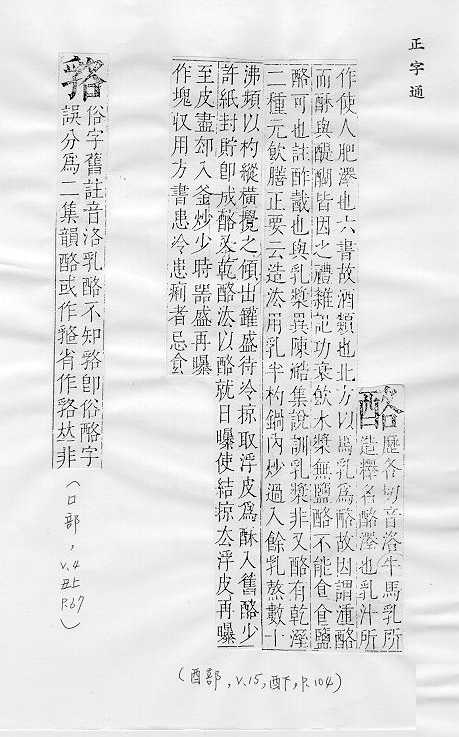 正字通
酪
歷各切音洛牛馬乳所
造釋名酪澤也乳汁所
作使人肥澤也六書故酒類也北方以馬乳為酪故因謂湩酪
而酥與醍醐皆因之禮雜記功衰飲水漿無鹽酪不能食食鹽
酪可也註酢䣧也與乳漿異陳澔集說訓乳漿非又酪有乾溼
二種元飲膳正要云造法用乳半杓鍋內炒過入餘乳熬數十
沸頻以杓縱橫攪之傾出罐盛待冷掠取浮皮為酥入舊酪少
許紙封貯卽成酪又乾酪法以酪就日曝使結掠去浮皮再曝
至皮盡却入釜炒少時器盛再曝
作塊収用方書患冷患痢者忌食
(酉部, v.15, 酉下, p.104)
俗字舊註音洛乳酪不知
卽俗酪字
誤分為二集韻酪或作
省作
𠀤非
(口部, v.4
丑上
p.67)